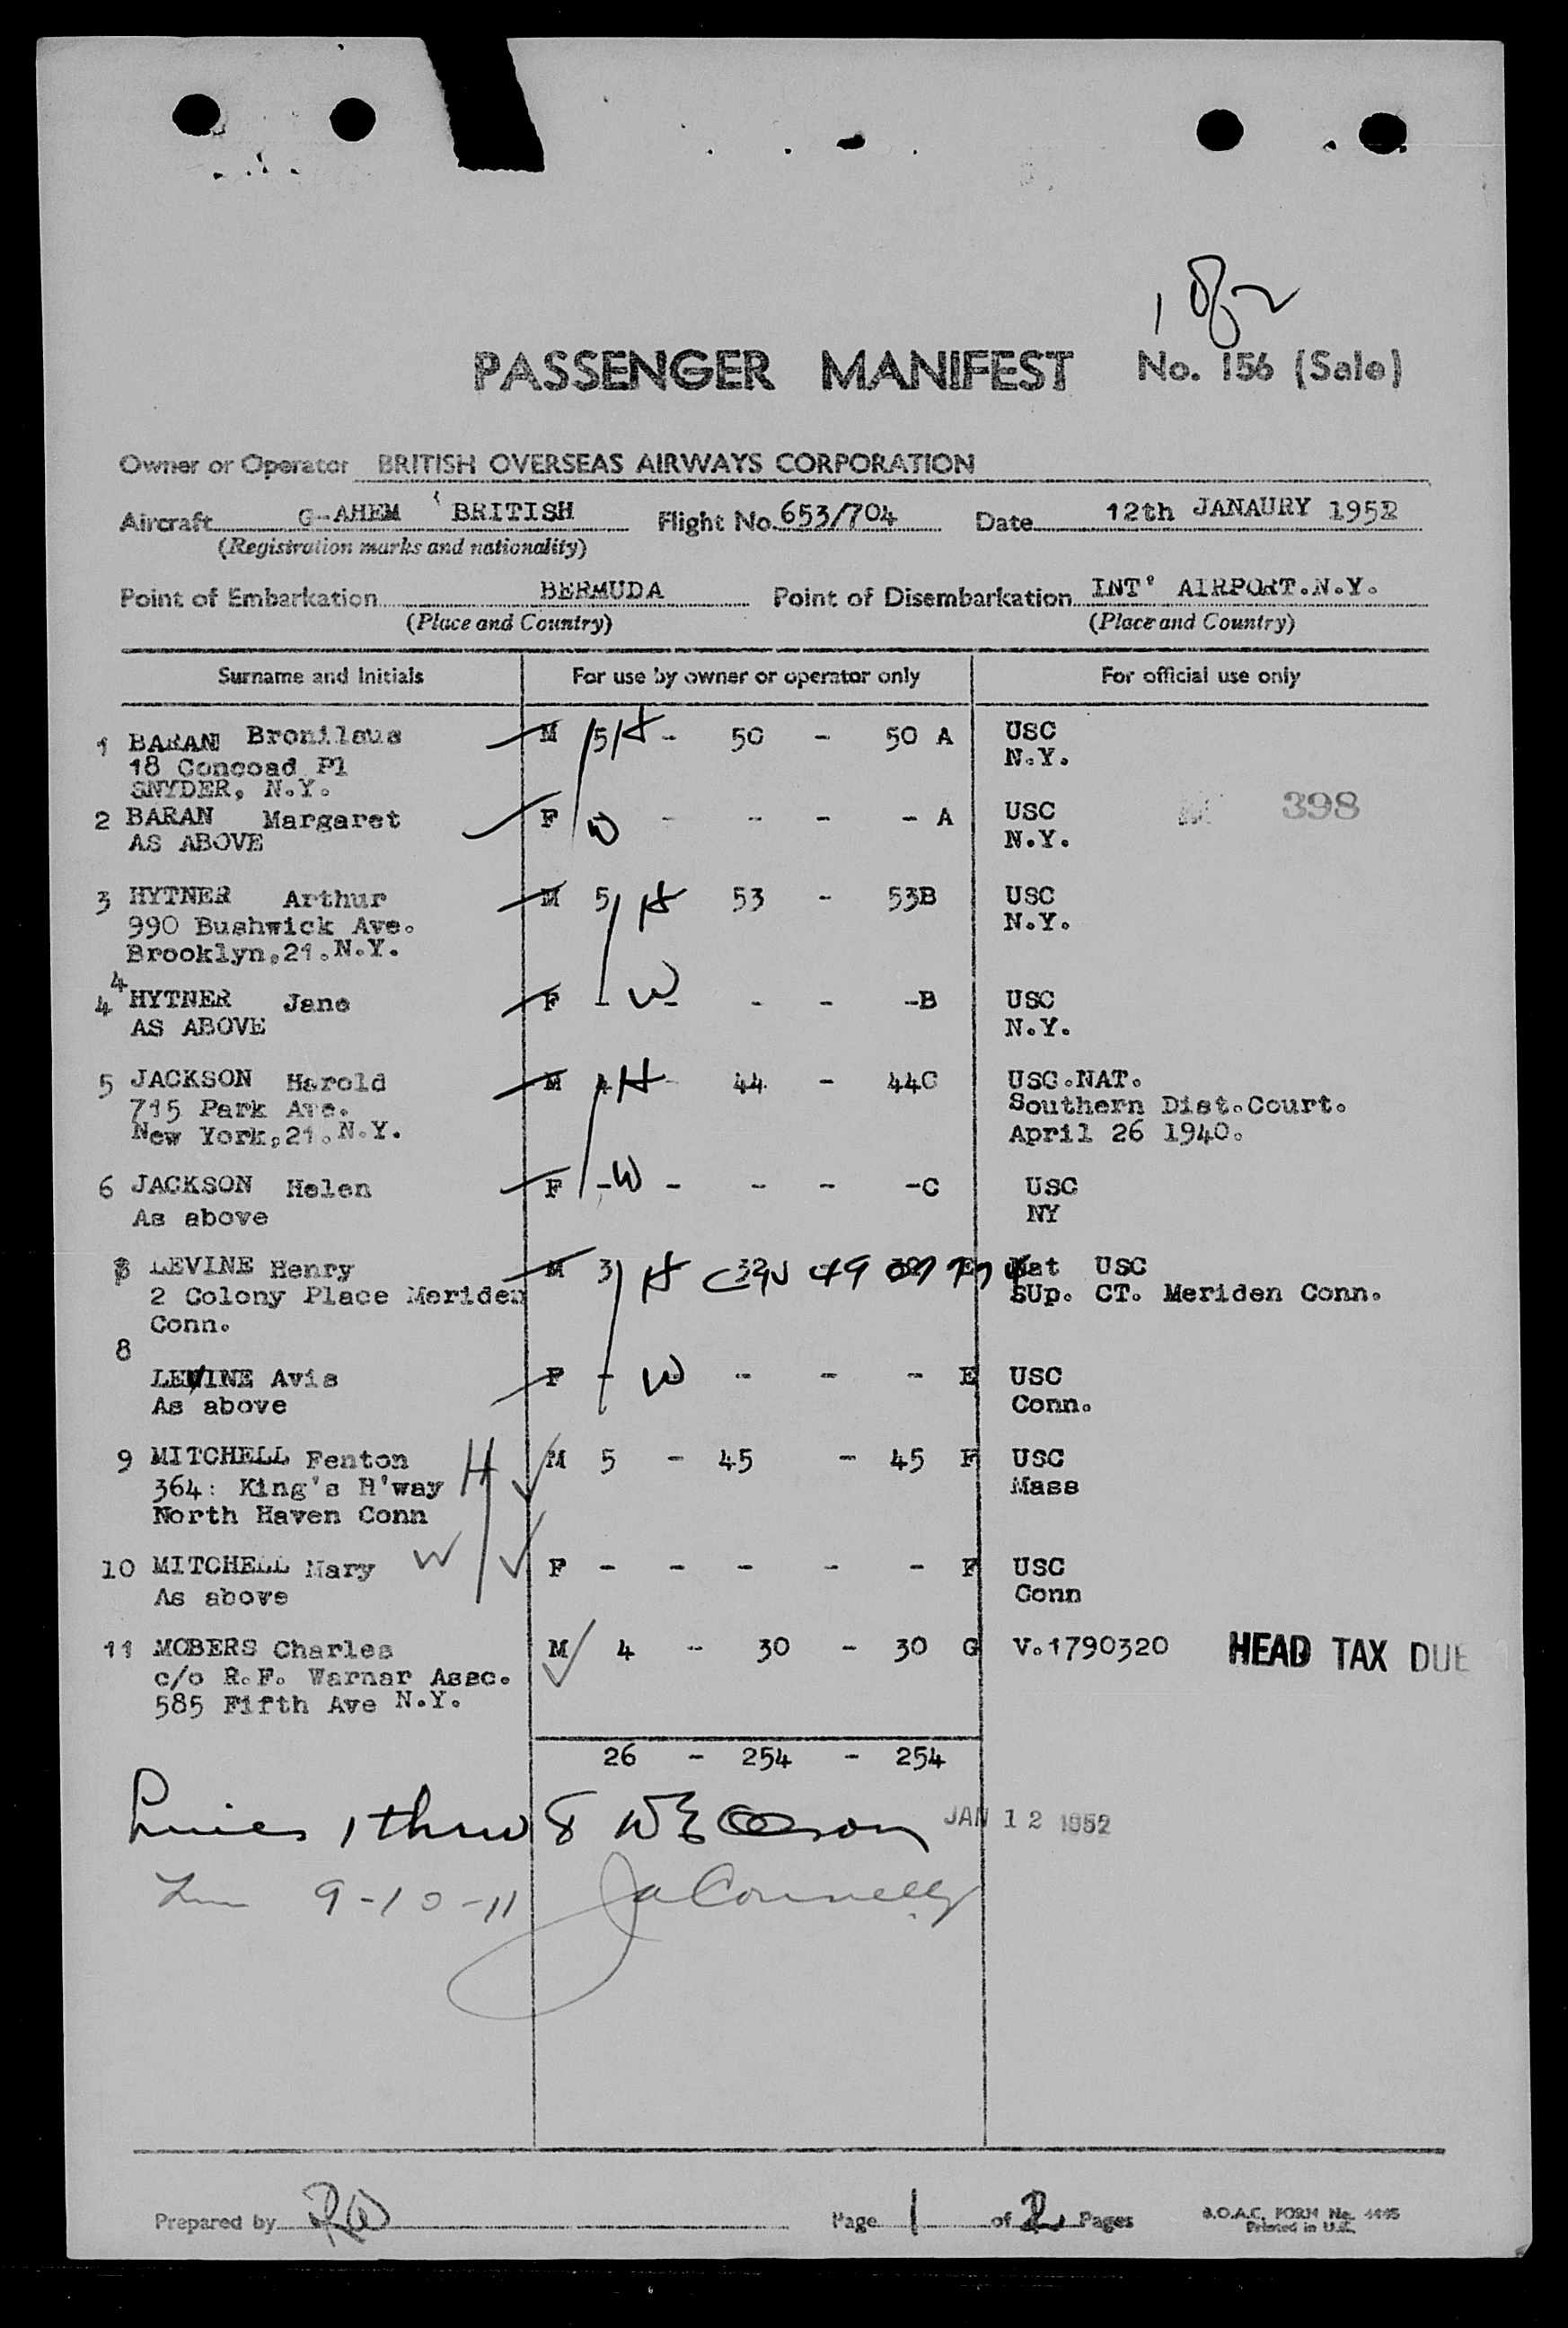 1 of 2
PASSENGER MANIFEST No. 156 (Sale)
Owner or Operator BRITISH OVERSEAS AIRWAYS CORPORATION
Aircraft G-AHEM BRITISH Flight No. 653/704 Date 12th JANAURY 1952
(Registration marks and nationality)
Point of Embarkation BERMUDA Point of Disembarkation INT' AIRPORT.N.Y.
(Place and Country) (Place and Country)
Surname and Initials For use by owner or operator only For official use only
1 BARAN Bronilaus M 5 H - 50 - 50 A USC
18 Concoad Pl N.Y.
SNYDER, N.Y.
2 BARAN Margaret F W - - - - A USC 398
AS ABOVE N.Y.
3 HYTNER Arthur M 5 H 53 - 53B USC
990 Bushwick Ave. N.Y.
Brooklyn,21.N.Y.
4
4 HYTNER Jane F - W - - - -B USC
AS ABOVE N.Y.
5 JACKSON Harold M 4 H - 44 - 44C USC.NAT.
715 Park Ave. Southern Dist.Court.
New York,21.N.Y. April 26 1940.
6 JACKSON Helen F - W - - - -C USC
As above NY
LEVINE Henry M 3 H 32 E Nat USC
2 Colony Place Meriden SUp. CT. Meriden Conn.
Conn.
8
LEVINE Avis F - W - - - E USC
As above Conn.
9 MITCHELL Fenton H M 5 - 45 - 45 F USC
364: King's H'way Mass
North Haven Conn
10 MITCHELL Mary W F - - - - - F USC
As above Conn
11 MOBERS Charles M 4 - 30 - 30 G V.1790320 HEAD TAX DUE
c/o R.F. Warnar Assc.
585 Fifth Ave N.Y.
26 - 254 - 254
Lines 1 thru 8 JAN 12 1952
9-10-11 JA Connelly
Prepared by RW Page 1 of 2 Pages B.O.A.C. FORM No. 4445
Printed in U.K.